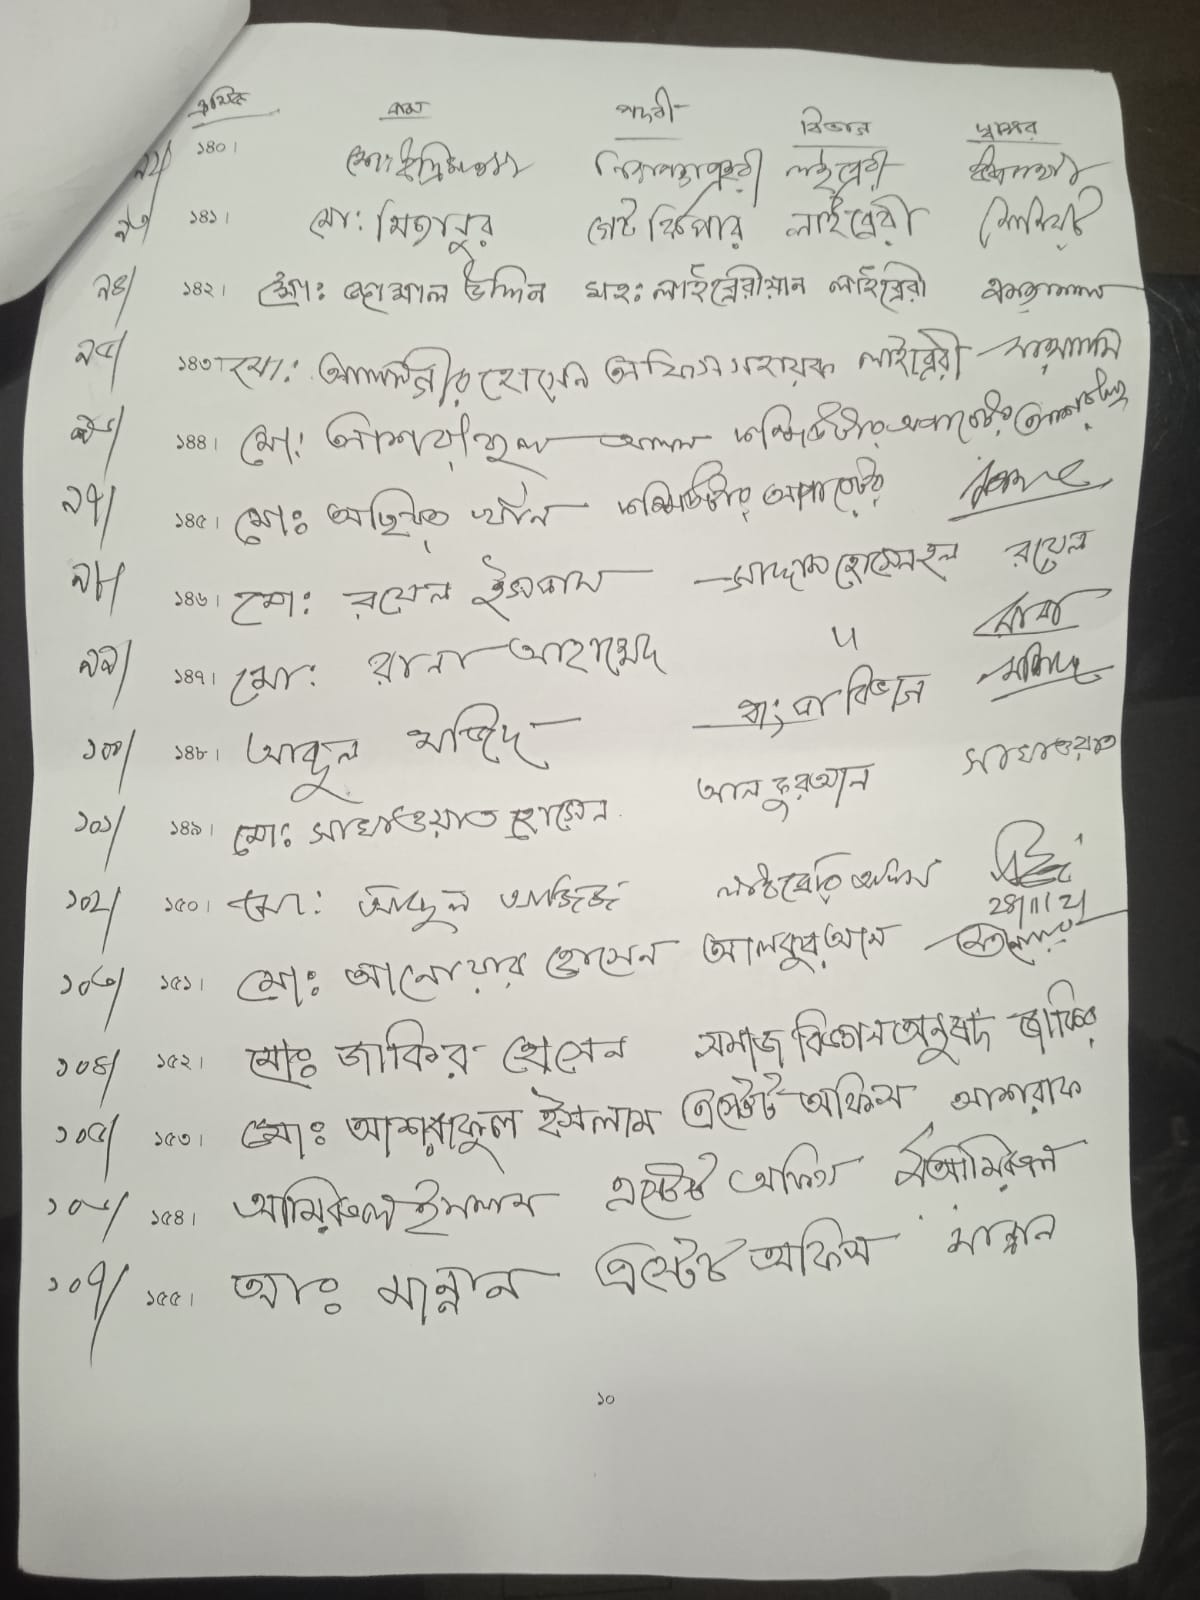 ক্রমিক নাম পদবী বিভাগ স্বাক্ষর
৯২/ ১৪০। মোঃ নিরাপত্তা প্রহরী লাইব্রেরী
৯৩/ ১৪১। মো: মিজানুর গেট কিপার লাইব্রেরী
৯৪/ ১৪২। মোঃ জামাল উদ্দিন সহঃ লাইব্রেরীয়ান লাইব্রেরী
৯৫/ ১৪৩। মো: আলমগীর হোসেন অফিস সহায়ক লাইব্রেরী
৯৬/ ১৪৪। মো: কম্পিউটার অপারেটর
৯৭/ ১৪৫। মোঃ খান কম্পিউটার অপারেটর
৯৮/ ১৪৬। মো: রুবেল ইসলাম সাদ্দাম হোসেন হল রুবেল
৯৯/ ১৪৭। মো: রানা আহাম্মেদ 〃 রানা
১০০/ ১৪৮। আব্দুল মজিদ বাংলা বিভাগ মজিদ
১০১/ ১৪৯। মোঃ সাখাওয়াত হোসেন আল কুরআন সাখাওয়াত
১০২/ ১৫০। মো: আব্দুল আজিজ লাইব্রেরি অফিস
২৪/১১/২১
১০৩/ ১৫১। মোঃ আনোয়ার হোসেন আলকুরআন
১০৪/ ১৫২। মোঃ জাকির হোসেন সমাজ বিজ্ঞান অনুষদ জাকির
১০৫/ ১৫৩। মোঃ আশরাফুল ইসলাম এস্টেট অফিস আশরাফ
১০৬/ ১৫৪। আমিরুল ইসলাম এস্টেট অফিস আমিরুল
১০৭/ ১৫৫। আঃ মান্নান এস্টেট অফিস মান্নান
১০